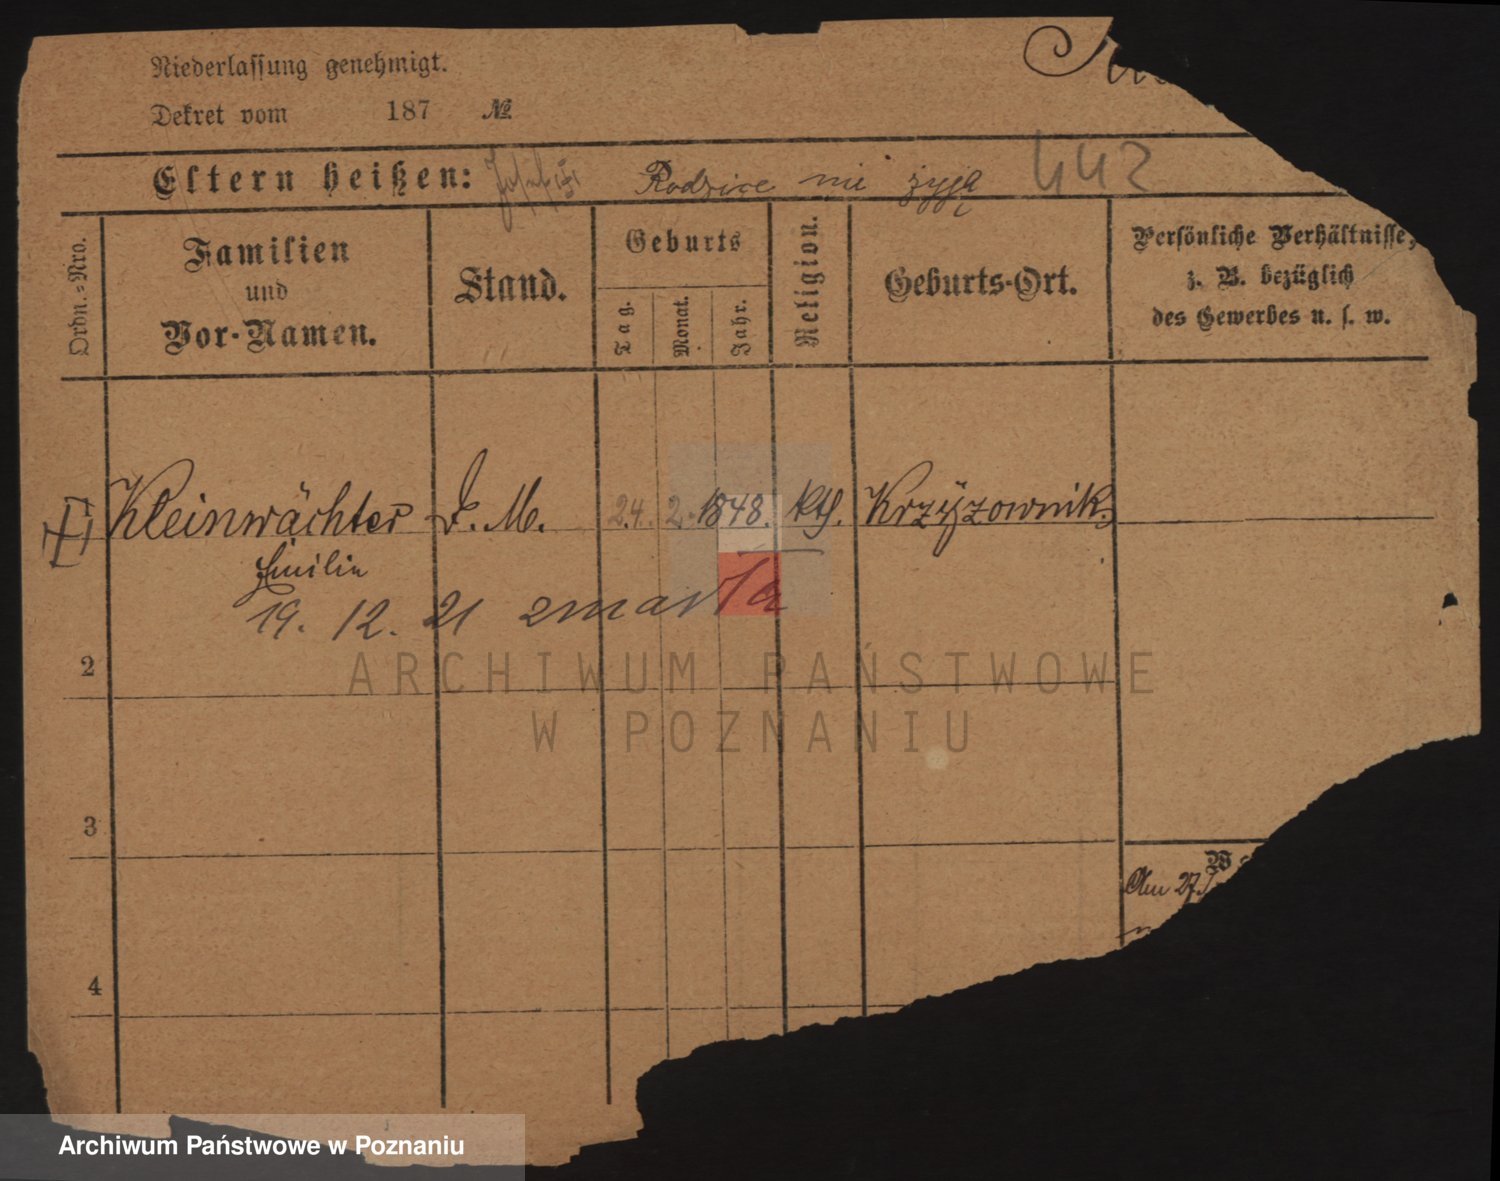 Niederlassung genehmigt.
Dekret vom 187 №
Eltern heißen: Rodzice nie żyją 442
Ordn.-Nro.
Familien
und
Vor-Namen.
Stand.
Geburts
Tag.
Monat.
Jahr.
Religion.
Geburts-Ort.
Persönliche Verhältnisse,
z. B. bezüglich
des Gewerbes u. s. w.
Kleinwächter D. M. 24. 2. 1848. kth. Krzyżownik
Emilie
19. 12. 21 zmarła
2
3
4
Am 27.
ARCHIWUM PAŃSTWOWE
W POZNANIU
Archiwum Państwowe w Poznaniu